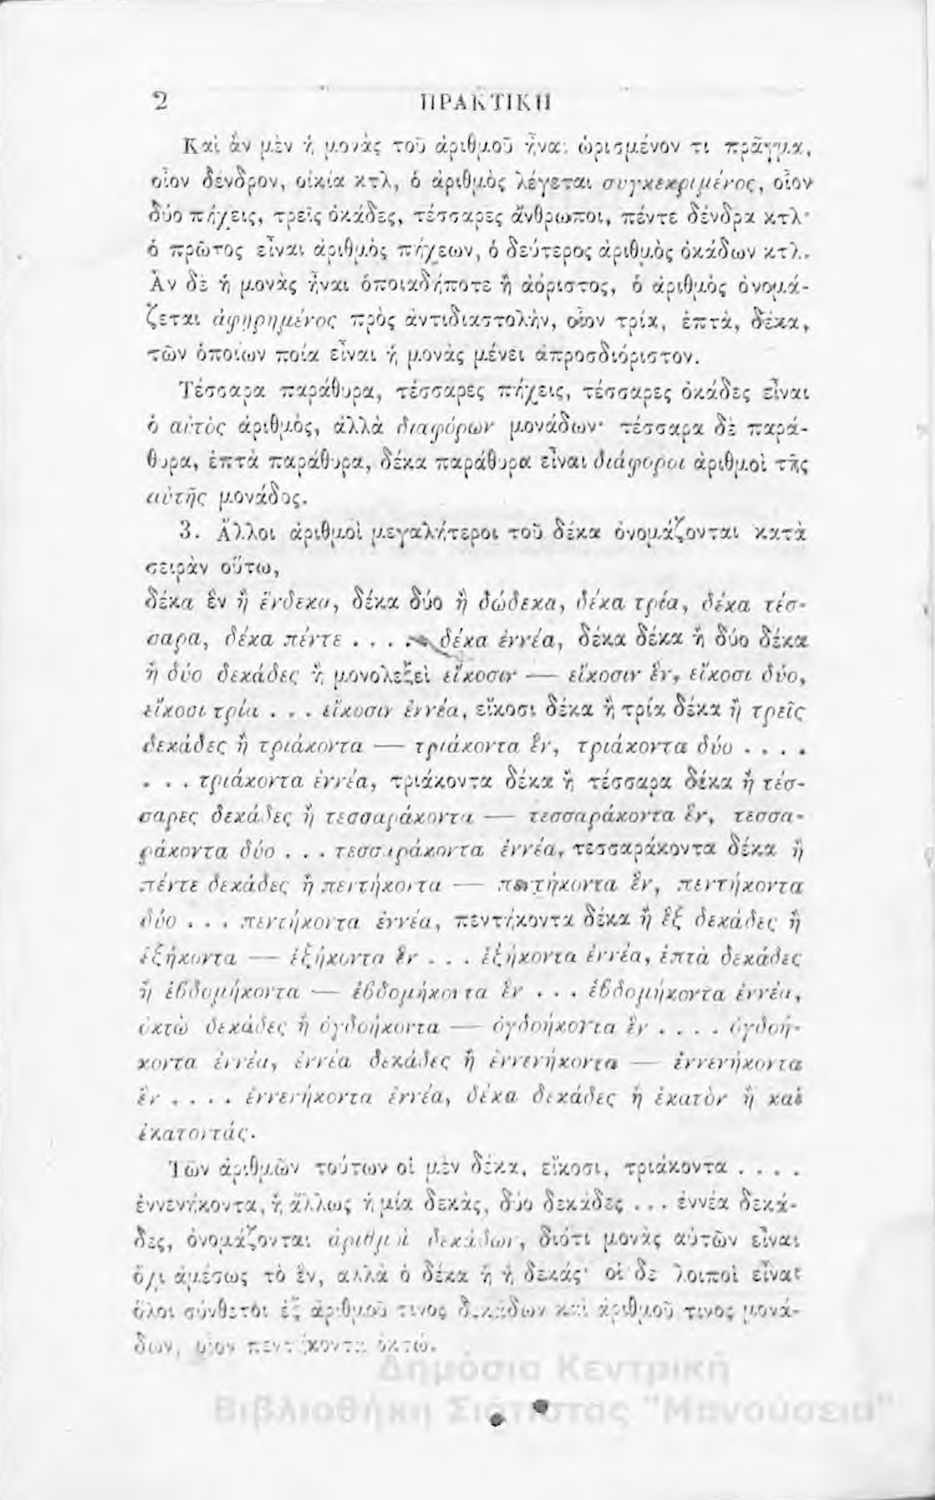 2 ΠΡΑΚΤΙΚΗ
Καὶ ἂν μὲν ἡ μονὰς τοῦ ἀριθμοῦ ἦναι ὡρισμένον τι πρᾶγμα,
οἷον δένδρον, οἰκία κτλ, ὁ ἀριθμὸς λέγεται συγκεκριμένος, οἷον
δύο πήχεις, τρεῖς ὀκάδες, τέσσαρες ἄνθρωποι, πέντε δένδρα κτλ·
ὁ πρῶτος εἶναι ἀριθμὸς πήχεων, ὁ δεύτερος ἀριθμὸς ὀκάδων κτλ.
Ἂν δὲ ἡ μονὰς ἦναι ὁποιαδήποτε ἢ ἀόριστος, ὁ ἀριθμὸς ὀνομά-
ζεται ἀφῃρημένος πρὸς ἀντιδιαστολήν, οἷον τρία, ἑπτὰ, δέκα,
τῶν ὁποίων ποία εἶναι ἡ μονὰς μένει ἀπροσδιόριστον.
Τέσσαρα παράθυρα, τέσσαρες πήχεις, τέσσαρες ὀκάδες εἶναι
ὁ αὐτὸς ἀριθμὸς, ἀλλὰ διαφόρων μονάδων· τέσσαρα δὲ παρά-
θυρα, ἑπτὰ παράθυρα, δέκα παράθυρα εἶναι διάφοροι ἀριθμοὶ τῆς
αὐτῆς μονάδος.
3. Ἄλλοι ἀριθμοὶ μεγαλήτεροι τοῦ δέκα ὀνομάζονται κατὰ
σειρὰν οὕτω,
δέκα ἓν ἢ ἕνδεκα, δέκα δύο ἢ δώδεκα, δέκα τρία, δέκα τέσ-
σαρα, δέκα πέντε . . . . δέκα ἐννέα, δέκα δέκα ἢ δύο δέκα
ἢ δύο δεκάδες ἢ μονολεξεὶ εἴκοσιν — εἴκοσιν ἓν, εἴκοσι δύο,
εἴκοσι τρία . . . εἴκοσιν ἐννέα, εἴκοσι δέκα ἢ τρία δέκα ἢ τρεῖς
δεκάδες ἢ τριάκοντα — τριάκοντα ἓν, τριάκοντα δύο . . . .
. . . τριάκοντα ἐννέα, τριάκοντα δέκα ἢ τέσσαρα δέκα ἢ τέσ-
σαρες δεκάδες ἢ τεσσαράκοντα — τεσσαράκοντα ἓν, τεσσα-
ράκοντα δύο . . . τεσσαράκοντα ἐννέα, τεσσαράκοντα δέκα ἢ
πέντε δεκάδες ἢ πεντήκοντα — πεντήκοντα ἓν, πεντήκοντα
δύο . . . πεντήκοντα ἐννέα, πεντήκοντα δέκα ἢ ἓξ δεκάδες ἢ
ἑξήκοντα — ἑξήκοντα ἓν . . . ἑξήκοντα ἐννέα, ἑπτὰ δεκάδες
ἢ ἑβδομήκοντα — ἑβδομήκοντα ἓν . . . ἑβδομήκοντα ἐννέα,
ὀκτὼ δεκάδες ἢ ὀγδοήκοντα — ὀγδοήκοντα ἓν . . . . ὀγδοή-
κοντα ἐννέα, ἐννέα δεκάδες ἢ ἐννενήκοντα — ἐννενήκοντα
ἓν . . . . ἐννενήκοντα ἐννέα, δέκα δεκάδες ἢ ἑκατὸν ἢ καὶ
ἑκατοντάς.
Τῶν ἀριθμῶν τούτων οἱ μὲν δέκα, εἴκοσι, τριάκοντα . . . .
ἐννενήκοντα, ἢ ἄλλως ἡ μία δεκὰς, δύο δεκάδες . . . ἐννέα δεκά-
δες, ὀνομάζονται ἀριθμοὶ δεκάδων, διότι μονὰς αὐτῶν εἶναι
ὄχι ἀμέσως τὸ ἓν, ἀλλὰ ὁ δέκα ἢ ἡ δεκάς· οἱ δὲ λοιποὶ εἶναι
ὅλοι σύνθετοι ἐξ ἀριθμοῦ τινος δεκάδων καὶ ἀριθμοῦ τινος μονά-
δων, οἷον πεντήκοντα ὀκτώ.
Δημόσια Κεντρική
Βιβλιοθήκη Σιάτιστας "Μανούσεια"